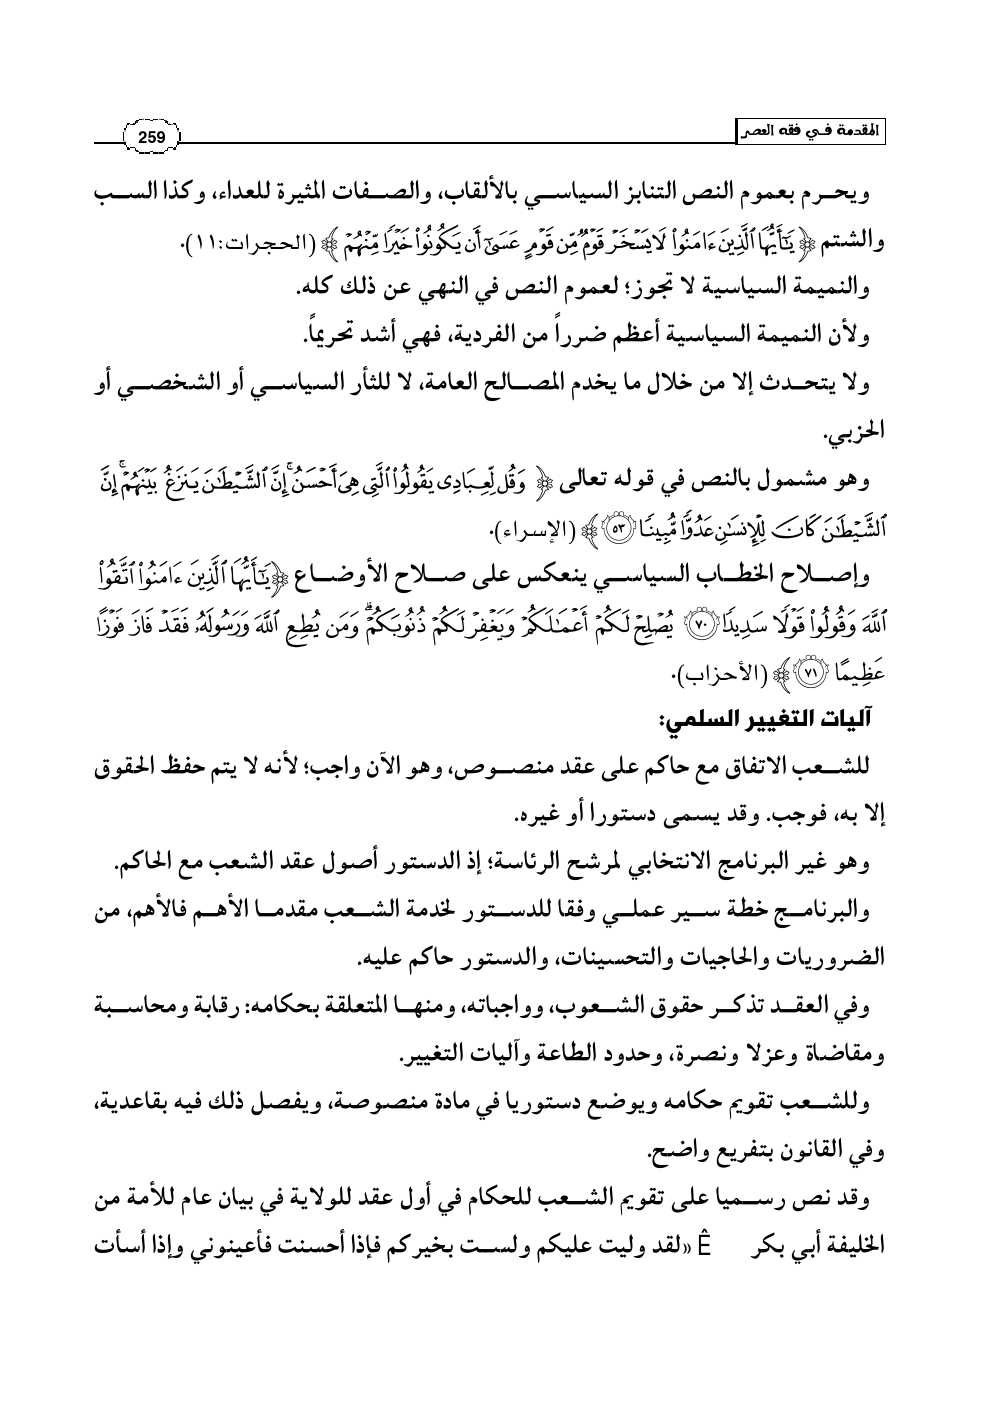 المقدمة في فقه العصر
259
ويحرم بعموم النص التنابز السياسي بالألقاب، والصفات المثيرة للعداء، وكذا السب
والشتم ﴿ يَٰٓأَيُّهَا ٱلَّذِينَ ءَامَنُوا۟ لَا يَسْخَرْ قَوْمٌ مِّن قَوْمٍ عَسَىٰٓ أَن يَكُونُوا۟ خَيْرًا مِّنْهُمْ ﴾ (الحجرات:١١).
والنميمة السياسية لا تجوز؛ لعموم النص في النهي عن ذلك كله.
ولأن النميمة السياسية أعظم ضرراً من الفردية، فهي أشد تحريماً.
ولا يتحدث إلا من خلال ما يخدم المصالح العامة، لا للثأر السياسي أو الشخصي أو
الحزبي.
وهو مشمول بالنص في قوله تعالى ﴿ وَقُل لِّعِبَادِى يَقُولُوا۟ ٱلَّتِى هِىَ أَحْسَنُ ۚ إِنَّ ٱلشَّيْطَٰنَ يَنزَغُ بَيْنَهُمْ ۚ إِنَّ
ٱلشَّيْطَٰنَ كَانَ لِلْإِنسَٰنِ عَدُوًّا مُّبِينًا ٥٣ ﴾ (الإسراء).
وإصلاح الخطاب السياسي ينعكس على صلاح الأوضاع ﴿ يَٰٓأَيُّهَا ٱلَّذِينَ ءَامَنُوا۟ ٱتَّقُوا۟
ٱللَّهَ وَقُولُوا۟ قَوْلًا سَدِيدًا ٧٠ يُصْلِحْ لَكُمْ أَعْمَٰلَكُمْ وَيَغْفِرْ لَكُمْ ذُنُوبَكُمْ ۗ وَمَن يُطِعِ ٱللَّهَ وَرَسُولَهُۥ فَقَدْ فَازَ فَوْزًا
عَظِيمًا ٧١ ﴾ (الأحزاب).
آليات التغيير السلمي:
للشعب الاتفاق مع حاكم على عقد منصوص، وهو الآن واجب؛ لأنه لا يتم حفظ الحقوق
إلا به، فوجب. وقد يسمى دستورا أو غيره.
وهو غير البرنامج الانتخابي لمرشح الرئاسة؛ إذ الدستور أصول عقد الشعب مع الحاكم.
والبرنامج خطة سير عملي وفقا للدستور لخدمة الشعب مقدما الأهم فالأهم، من
الضروريات والحاجيات والتحسينات، والدستور حاكم عليه.
وفي العقد تذكر حقوق الشعوب، وواجباته، ومنها المتعلقة بحكامه: رقابة ومحاسبة
ومقاضاة وعزلا ونصرة، وحدود الطاعة وآليات التغيير.
وللشعب تقويم حكامه ويوضع دستوريا في مادة منصوصة، ويفصل ذلك فيه بقاعدية،
وفي القانون بتفريع واضح.
وقد نص رسميا على تقويم الشعب للحكام في أول عقد للولاية في بيان عام للأمة من
الخليفة أبي بكر Ê «لقد وليت عليكم ولست بخيركم فإذا أحسنت فأعينوني وإذا أسأت